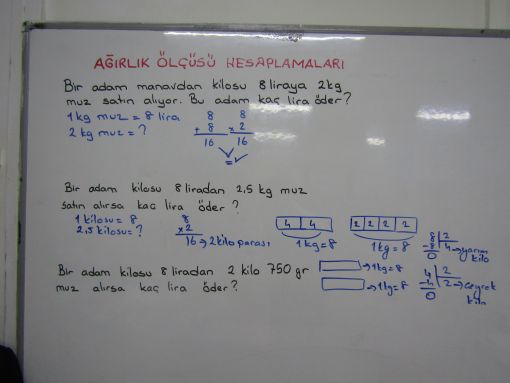 AĞIRLIK ÖLÇÜSÜ HESAPLAMALARI
Bir adam manavdan kilosu 8 liraya 2 kg
muz satın alıyor. Bu adam kaç lira öder?
1 kg muz = 8 lira
2 kg muz = ?
8
+ 8
16
8
x 2
16
=
Bir adam kilosu 8 liradan 2,5 kg muz
satın alırsa kaç lira öder?
1 kilosu = 8
2,5 kilosu = ?
8
x2
16 → 2 kilo parası
4 4
1 kg = 8
2 2 2 2
1 kg = 8
8 2
-8 4 → yarım
0 kilo
Bir adam kilosu 8 liradan 2 kilo 750 gr
muz alırsa kaç lira öder?
→ 1 kg = 8
→ 1 kg = 8
4 2
-4 2 → çeyrek
0 kilo